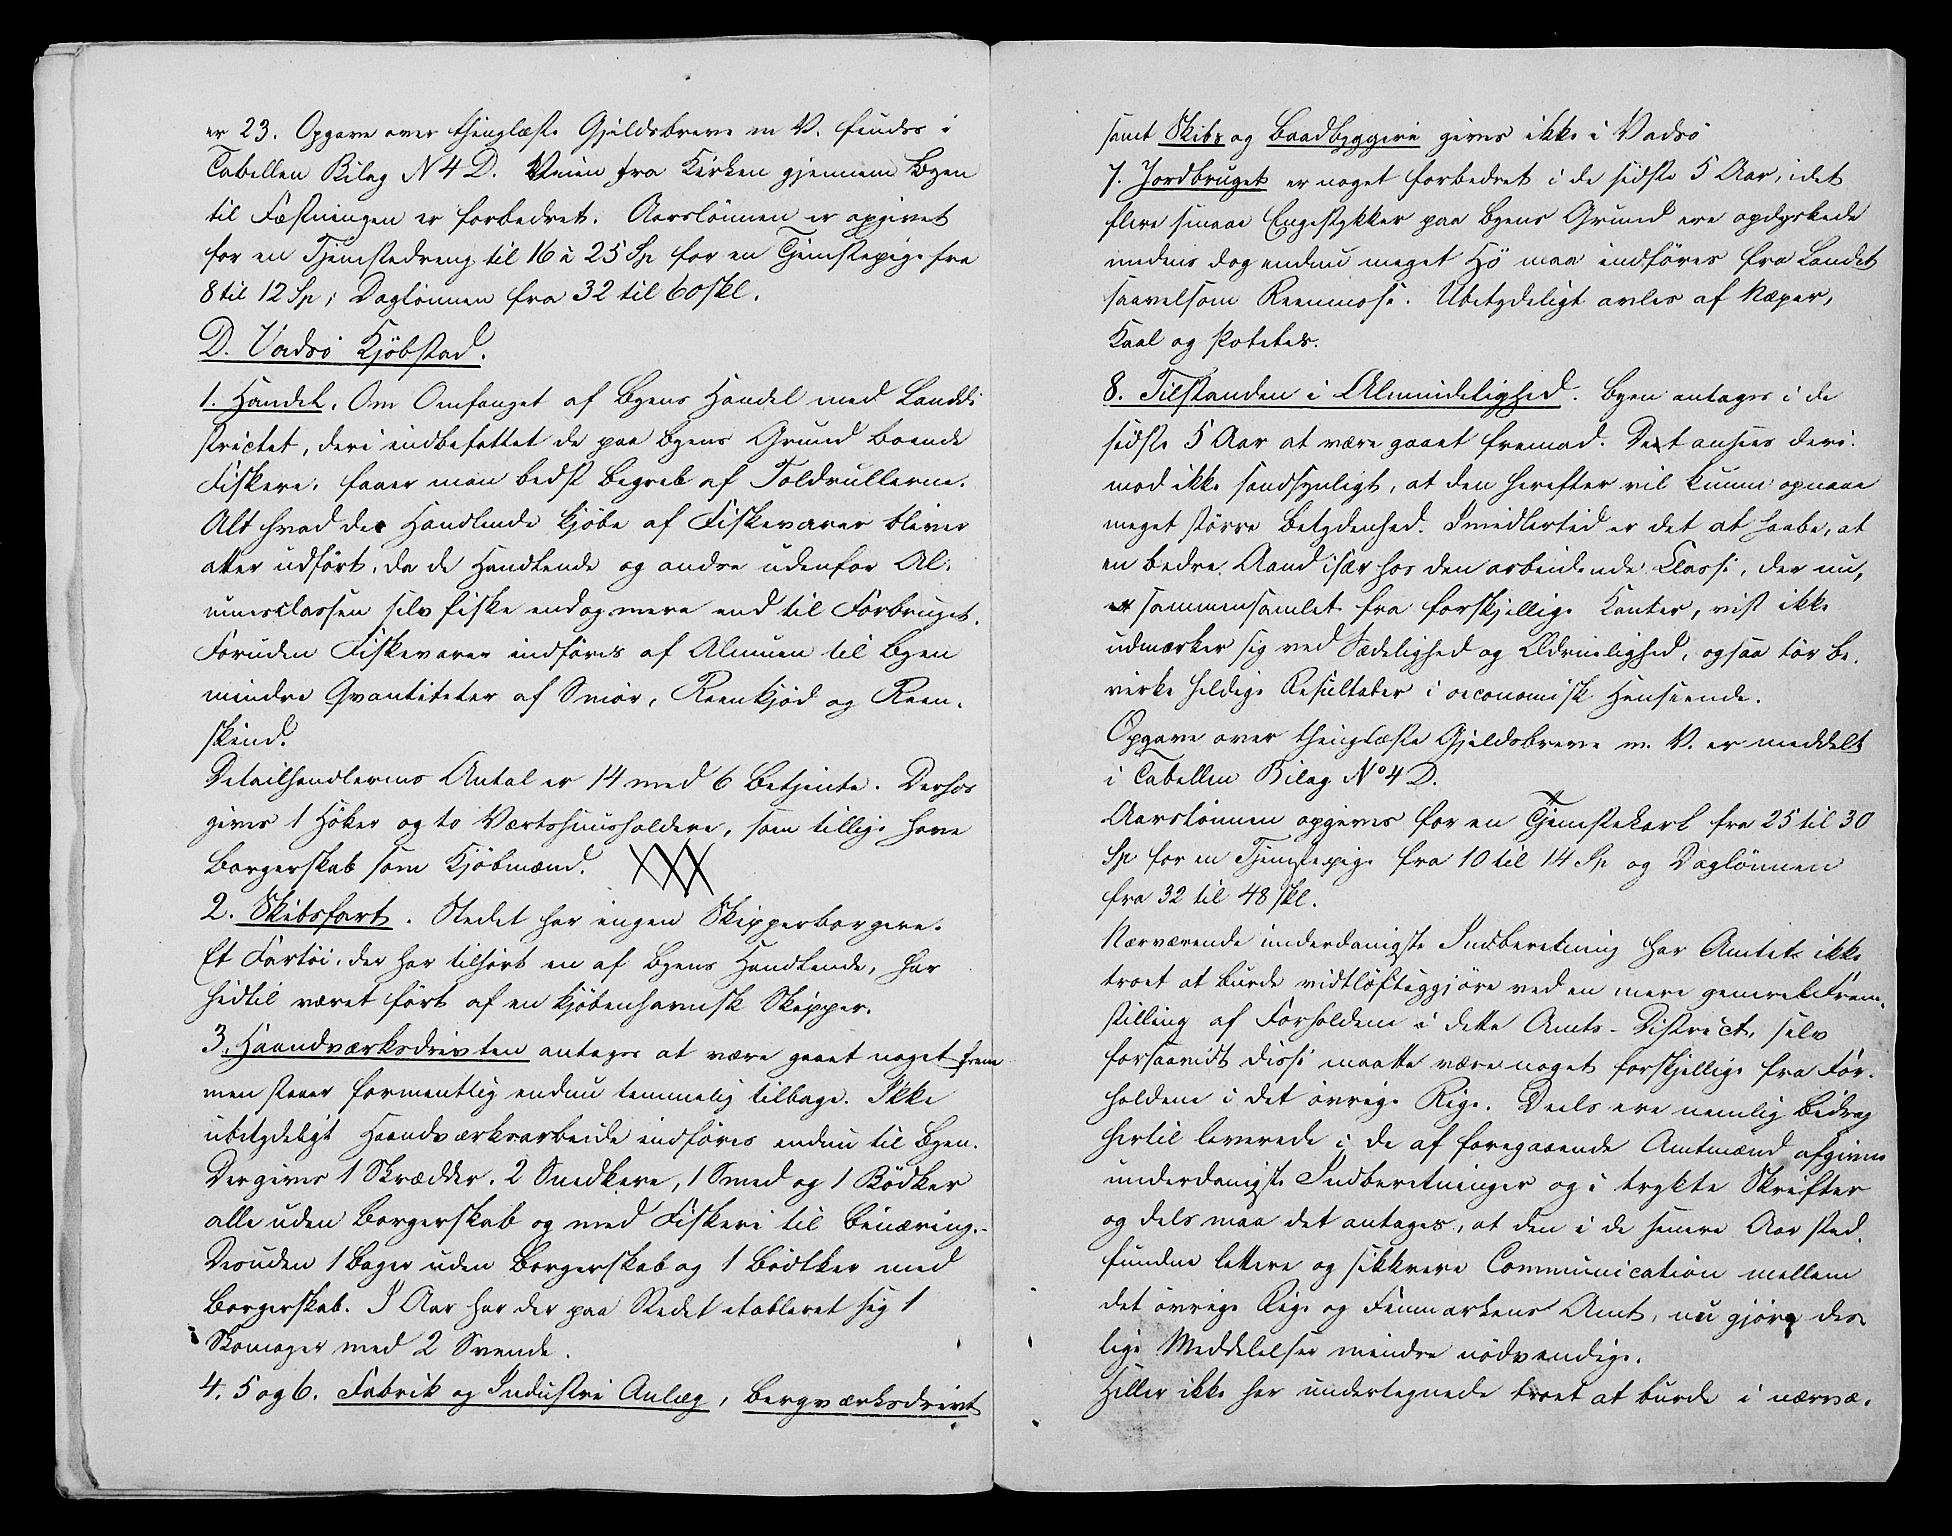 er 23. Opgave over thinglæste Gjeldsbreve m. V. findes i
Tabellen Bilag N 4 D. Veien fra Kirken gjennem Byen
til Fæstningen er forbedret. Aarslönnen er opgivet
for en Tjenestedreng til 16 à 25 Sp for en Tjenestepige fra
8 til 12 Sp; Daglönnen fra 32 til 60 skl.
D. Vadsö Kjöbstad.
1. Handel. Om Omfanget af Byens Handel med Landdi
strictet, deri indbefattet de paa Byens Grund boende
Fiskere, faaer man bedst Begreb af Toldrullerne.
Alt hvad de Handlende kjöbe af Fiskevarer bliver
atter udfört, da de Handlende og andre udenfor Al-
mueclassen selv fiske endog mere end til Forbruget.
Foruden Fiskevarer indföres af Almuen til Byen
mindre Qvantiteter af Smör, Reenkjöd og Reen-
skind.
Detailhandlernes Antal er 14 med 6 Betjente. Derhos
gives 1 Höker og to Værtshuusholdere, som tillige have
Borgerskab som Kjöbmænd.
2. Skibsfart. Stedet har ingen Skipperborgere.
Et Fartöi, der har tilhört en af Byens Handlende, har
hidtil været fört af en kjöbenhavnsk Skipper.
3. Haandværksdriften antages at være gaaet noget frem
men staaer formentlig endnu temmelig tilbage. Ikke
ubetydeligt Haandværksarbeide indföres endnu til Byen.
Der gives 1 Skrædder, 2 Snedkere, 1 Smed og 1 Bödker
alle uden Borgerskab og med Fiskeri til Binæring.-
Desuden 1 Bager uden Borgerskab og 1 Bödker med
Borgerskab. I Aar har der paa Stedet etableret sig 1
Skomager med 2 Svende.
4. 5 og 6. Fabrik og Industrie Anlæg, Bergværksdrivt
samt Skibs og Baadbyggeri gives ikke i Vadsö
7. Jordbruget er noget forbedret i de sidste 5 Aar, idet
flere smaae Engestykker paa Byens Grund ere opdyrkede
medens dog endnu meget Hö maa indföres fra Landet
saavelsom Reenmose. Ubetydeligt avles af Næper,
Kaal og Potetes.
8. Tilstanden i Almindelighed. Byen antages i de
sidste 5 Aar at være gaaet fremad. Det ansees deri-
mod ikke sandsynligt, at den herefter vil kunne opnaae
meget större Betydenhed. Imidlertid er det at haabe, at
en bedre Aand især hos den arbeidende Classe, der nu,
sammensamlet fra forskjellige Kanter, vist ikke
udmærker sig ved Sædelighed og Ædruelighed, ogsaa tör be-
virke heldige Resultater i oeconomisk Henseende.
Opgave over thinglæste Gjeldsbreve m. V. er meddelt
i Tabellen Bilag No 4 D.
Aarslönnen opgives for en Tjenestekarl fra 25 til 30
Sp for en Tjenstepige fra 10 til 14 Sp og Daglönnen
fra 32 til 48 skl.
Nærværende underdanigste Indberetning har Amtet ikke
troet at burde vidtlöftiggjöre ved en mere generel Frem-
stilling af Forholdene i dette Amts-District, selv
forsaavidt disse maatte være noget forskjellige fra For-
holdene i det övrige Rige. Deels ere nemlig Bidrag
hertil leverede i de af foregaaende Amtmænd afgivne
underdanigste Indberetninger og i trykte Skrifter
og dels maa det antages, at den i de senere Aar sted-
fundne lettere og sikkrere Communication mellem
det övrige Rige og Finmarkens Amt, nu gjöre des-
lige Meddelelser mindre nödvendige.
Heller ikke har undertegnede troet at burde i nærvæ-